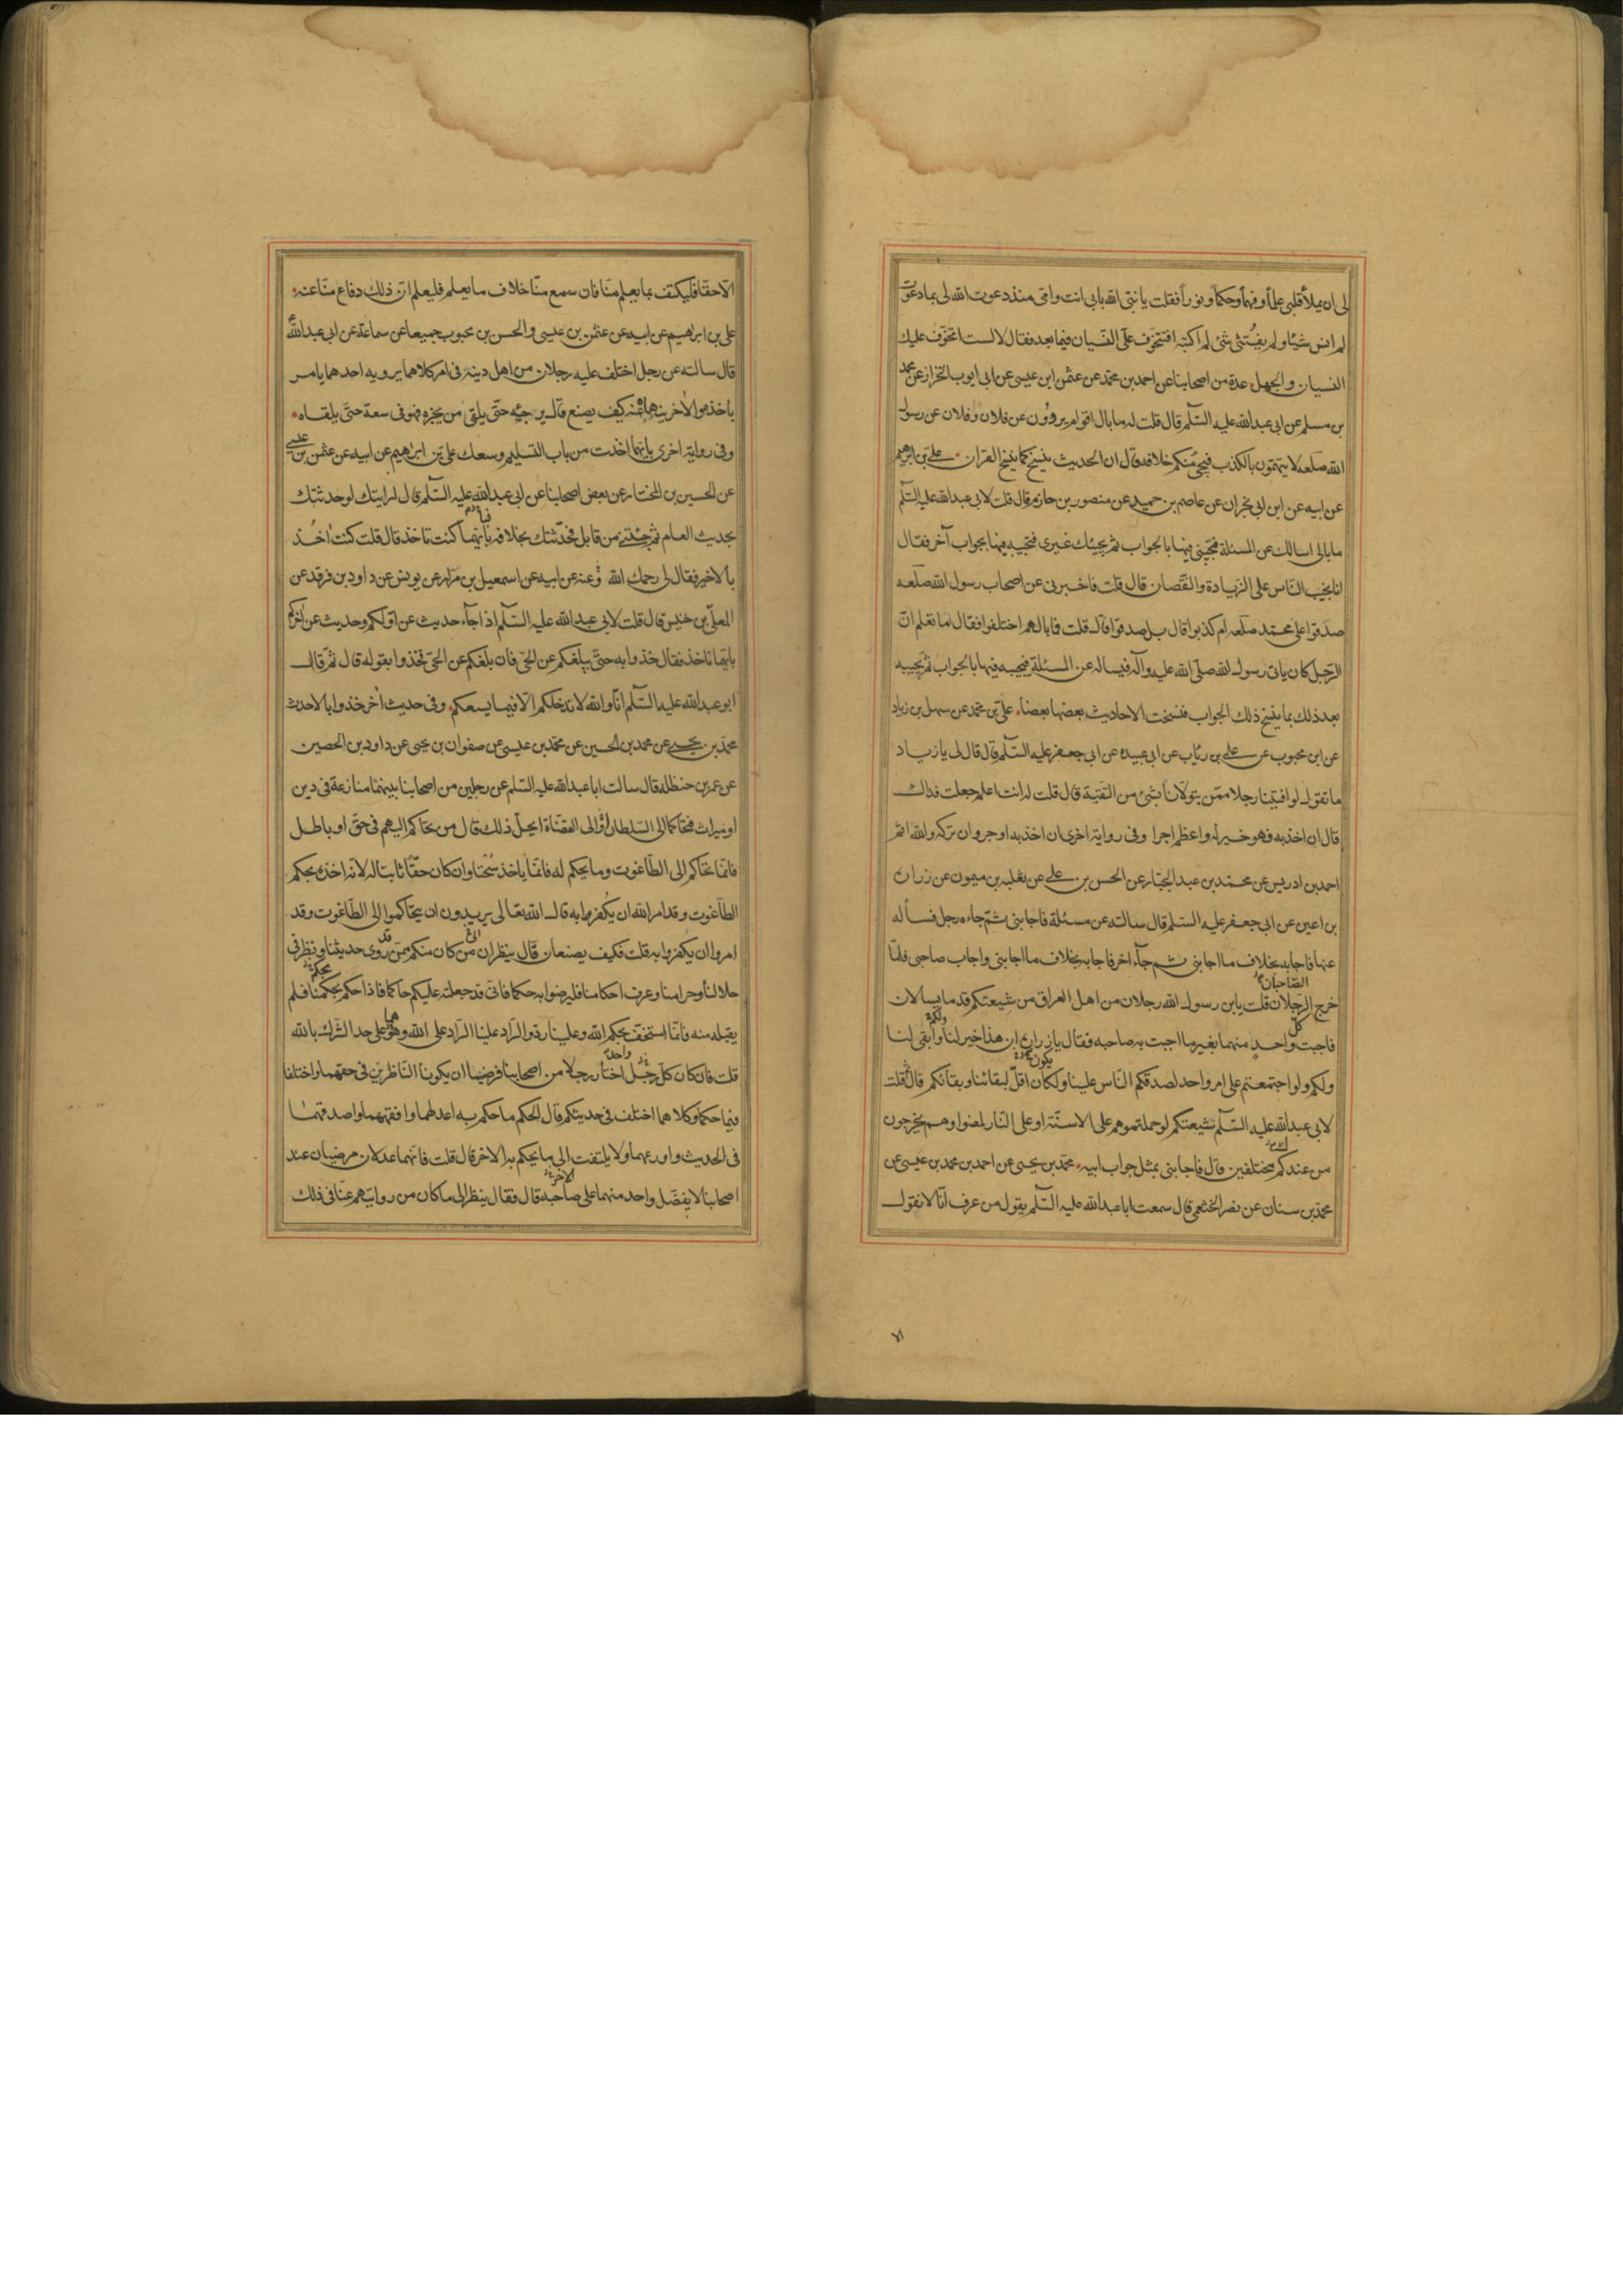 لى ان يملأ قلبى علماً وفهماً وحكماً ونوراً فقلت يا نبى الله بابى انت وامى منذ دعوت الله لى بما دعوت
لم انس شيئا ولم يفتنى شئ لم اكتبه افتتخوف علىّ النسيان فيما بعد فقال لا لست اتخوف عليك
النسيان والجهل عدة من اصحابنا عن احمد بن محمد عن عثمن ابن عيسى عن ابى ايوب الخراز عن محمد
بن مسلم عن ابى عبد الله عليه السلم قال قلت له ما بال اقوام يروون عن فلان وفلان عن رسول
الله صلعم لا يتهمون بالكذب فيجئ منكم خلافه قال ان الحديث ينسخ كما ينسخ القران علي بن ابرهيم
عن ابيه عن ابن ابى نجران عن عاصم بن حميد عن منصور بن حازم قال قلت لابى عبد الله عليه السلم
ما بالى اسالك عن المسئلة فتجيبنى فيها بالجواب ثم يجيئك غيرى فتجيبه فيها بجواب آخر فقال
انا نجيب الناس على الزيادة والنقصان قال قلت فاخبرنى عن اصحاب رسول الله صلعم
صدقوا على محمد صلعم ام كذبوا قال بل صدقوا قال قلت فما بالهم اختلفوا فقال اما تعلم ان
الرجل كان ياتى رسول الله صلى الله عليه وآله فيساله عن المسئلة فيجيبه فيها بالجواب ثم يجيبه
بعد ذلك بما ينسخ ذلك الجواب فنسخت الاحاديث بعضها بعضا علي بن محمد عن سهل بن زياد
عن ابن محبوب عن علي بن رئاب عن ابى عبيده عن ابى جعفر عليه السلم قال قال لى يا زياد
ما تقول لو افتينا رجلا ممن يتولانا بشئ من التقية قال قلت له انت اعلم جعلت فداك
قال ان اخذ به فهو خير له واعظم اجرا وفى رواية اخرى ان اخذ به اوجر وان تركه والله اثم
احمد بن ادريس عن محمد بن عبد الجبار عن الحسن بن علي عن ثعلبه بن ميمون عن زرارة
بن اعين عن ابى جعفر عليه السلم قال سالته عن مسئلة فاجابنى ثم جاءه رجل فسأله
عنها فاجابه بخلاف ما اجابنى ثم جآء اخر فاجابه بخلاف ما اجابنى واجاب صاحبى فلما
خرج الرجلان قلت يابن رسول الله رجلان من اهل العراق من شيعتكم قدما يسالان
فاجبت كل واحد منهما بغير ما اجبت به صاحبه فقال يا زرارة ان هذا خير لنا وابقى لنا
ولكم ولو اجتمعتم على امر واحد لصدقكم الناس علينا ولكان اقل لبقائنا وبقائكم قال ثم قلت
لابى عبد الله عليه السلم شيعتكم لو حملتموهم على الاسنة او على النار لمضوا وهم يخرجون
من عندكم مختلفين قال فاجابنى بمثل جواب ابيه محمد بن يحيى عن احمد بن محمد بن عيسى عن
محمد بن سنان عن نصر الخثعمى قال سمعت ابا عبد الله عليه السلم يقول من عرف انا لا نقول
الا حقا فليكتف بما يعلم منا فان سمع منا خلاف ما يعلم فليعلم ان ذلك دفاع منا عنه
على بن ابرهيم عن ابيه عن عثمن بن عيسى والحسن بن محبوب جميعا عن سماعة عن ابى عبد الله
قال سالته عن رجل اختلف عليه رجلان من اهل دينه فى امر كلاهما يرويه احدهما يامر
باخذه والاخر ينهاه عنه كيف يصنع قال يرجئه حتى يلقى من يخبره فهو فى سعة حتى يلقاه
وفى رواية اخرى بايهما اخذت من باب التسليم وسعك على بن ابرهيم عن ابيه عن عثمن بن عيسى
عن الحسين بن المختار عن بعض اصحابنا عن ابى عبد الله عليه السلم قال ارايتك لو حدثتك
بحديث العام ثم جئتنى من قابل فحدثتك بخلافه بايهما كنت تاخذ قال قلت كنت اخذ
بالاخير فقال لى رحمك الله وعنه عن ابيه عن اسمعيل بن مرار عن يونس عن داود بن فرقد عن
المعلى بن خنيس قال قلت لابى عبد الله عليه السلم اذا جآء حديث عن اولكم وحديث عن اخركم
بايهما ناخذ فقال خذوا به حتى يبلغكم عن الحى فان بلغكم عن الحى فخذوا بقوله قال ثم قال
ابو عبد الله عليه السلم انا والله لا ندخلكم الا فيما يسعكم وفى حديث اخر خذوا بالاحدث
محمد بن يحيى عن محمد بن الحسين عن محمد بن عيسى عن صفوان بن يحيى عن داود بن الحصين
عن عمر بن حنظله قال سالت ابا عبد الله عليه السلم عن رجلين من اصحابنا بينهما منازعة فى دين
او ميراث فتحاكما الى السلطان او الى القضاة ايحل ذلك قال من تحاكم اليهم فى حق او باطل
فانما تحاكم الى الطاغوت وما يحكم له فانما ياخذ سحتا وان كان حقا ثابتا له لانه اخذه بحكم
الطاغوت وقد امر الله ان يكفر به قال الله تعالى يريدون ان يتحاكموا الى الطاغوت وقد
امروا ان يكفروا به قلت فكيف يصنعان قال ينظران الى من كان منكم ممن قد روى حديثنا ونظر فى
حلالنا وحرامنا وعرف احكامنا فليرضوا به حكما فانى قد جعلته عليكم حاكما فاذا حكم بحكمنا فلم
يقبله منه فانما استخف بحكم الله وعلينا رد والراد علينا الراد على الله وهو على حد الشرك بالله
قلت فان كان كل رجل اختار رجلا من اصحابنا فرضيا ان يكونا الناظرين فى حقهما واختلفا
فيما حكما وكلاهما اختلف فى حديثكم قال الحكم ما حكم به اعدلهما وافقههما واصدقهما
فى الحديث واورعهما ولا يلتفت الى ما يحكم به الاخر قال قلت فانهما عدلان مرضيان عند
اصحابنا لا يفضل واحد منهما على صاحبه قال فقال ينظر الى ما كان من روايتهم عنا فى ذلك